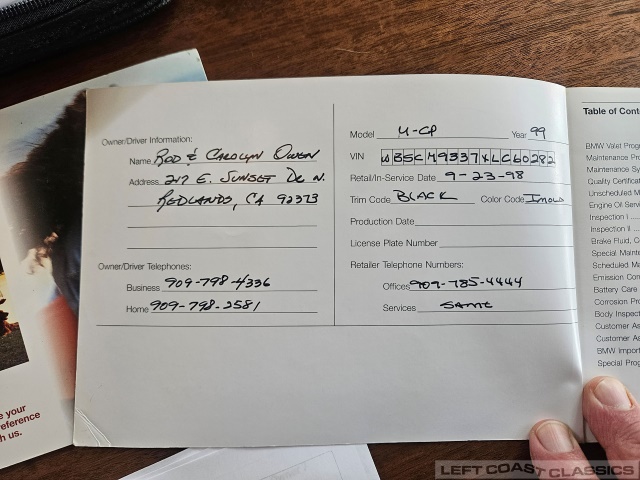 Owner/Driver Information:
Name ROD & CAROLYN OWEN
Address 217 E. SUNSET DR N.
REDLANDS, CA 92373
Owner/Driver Telephones:
Business 909-798-4336
Home 909-798-2581
Model M-CP Year 99
VIN WBSCM9337XLC60282
Retail/In-Service Date 9-23-98
Trim Code BLACK Color Code IMOLA
Production Date
License Plate Number
Retailer Telephone Numbers:
Offices 909-785-4444
Services SAME
Table of Cont
BMW Valet Prog
Maintenance Pro
Maintenance Sy
Quality Certificat
Unscheduled M
Engine Oil Servi
Inspection I
Inspection II
Brake Fluid, C
Special Mainte
Scheduled Ma
Emission Con
Battery Care
Corrosion Pro
Body Inspect
Customer As
Customer As
BMW Import
Special Prog
e your
eference
h us.
LEFT COAST CLASSICS